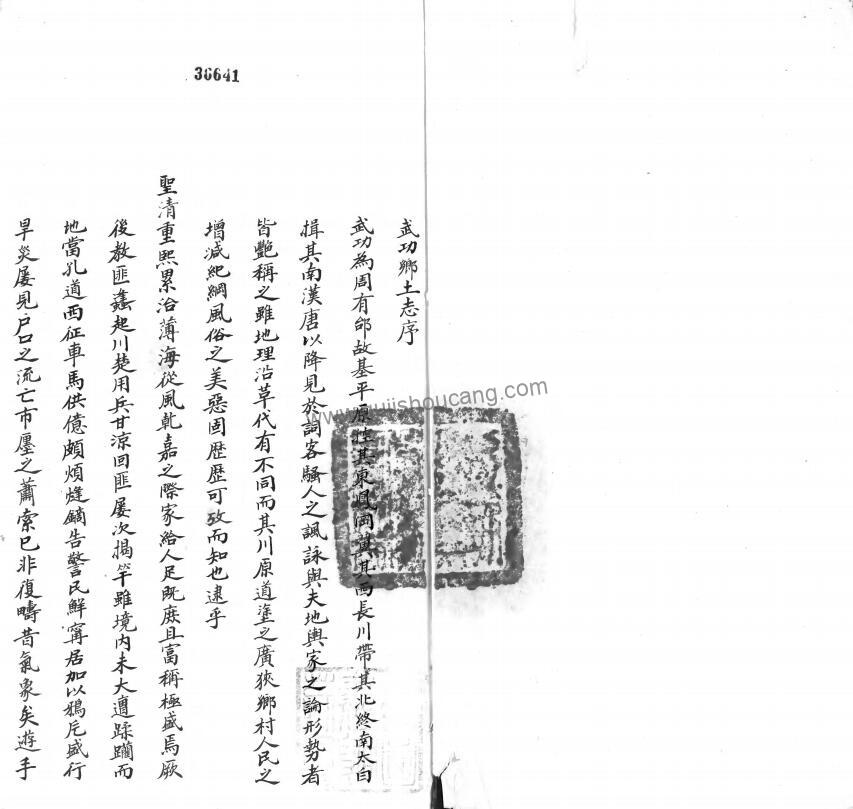 36641
武功鄉土志序
武功為周有邰故基平原控其東鳳岡冀其西長川帶其北終南太白
揖其南漢唐以降見於詞客騷人之諷詠與夫地輿家之論形勢者
皆艷稱之雖地理沿革代有不同而其川原道塗之廣狹鄉村人民之
增減紀綱風俗之美惡固歷歷可攷而知也逮乎
聖清重熙累洽薄海從風乾嘉之際家給人足既庶且富稱極盛焉厥
後教匪蠭起川楚用兵甘涼回匪屢次揭竿雖境內未大遭蹂躪而
地當孔道西征車馬供億頗煩燧鏑告警民鮮甯居加以鴉片盛行
旱災屢見戶口之流亡市廛之蕭索已非復疇昔氣象矣遊手